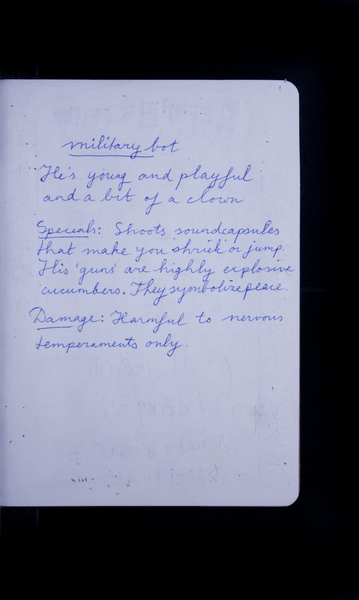 military bot
He's young and playful
and a bit of a clown
Specials: Shoots soundcapsules
that make you shriek or jump.
His 'guns' are highly explosive
cucumbers. They symbolize peace.
Damage: Harmful to nervous
temperaments only.